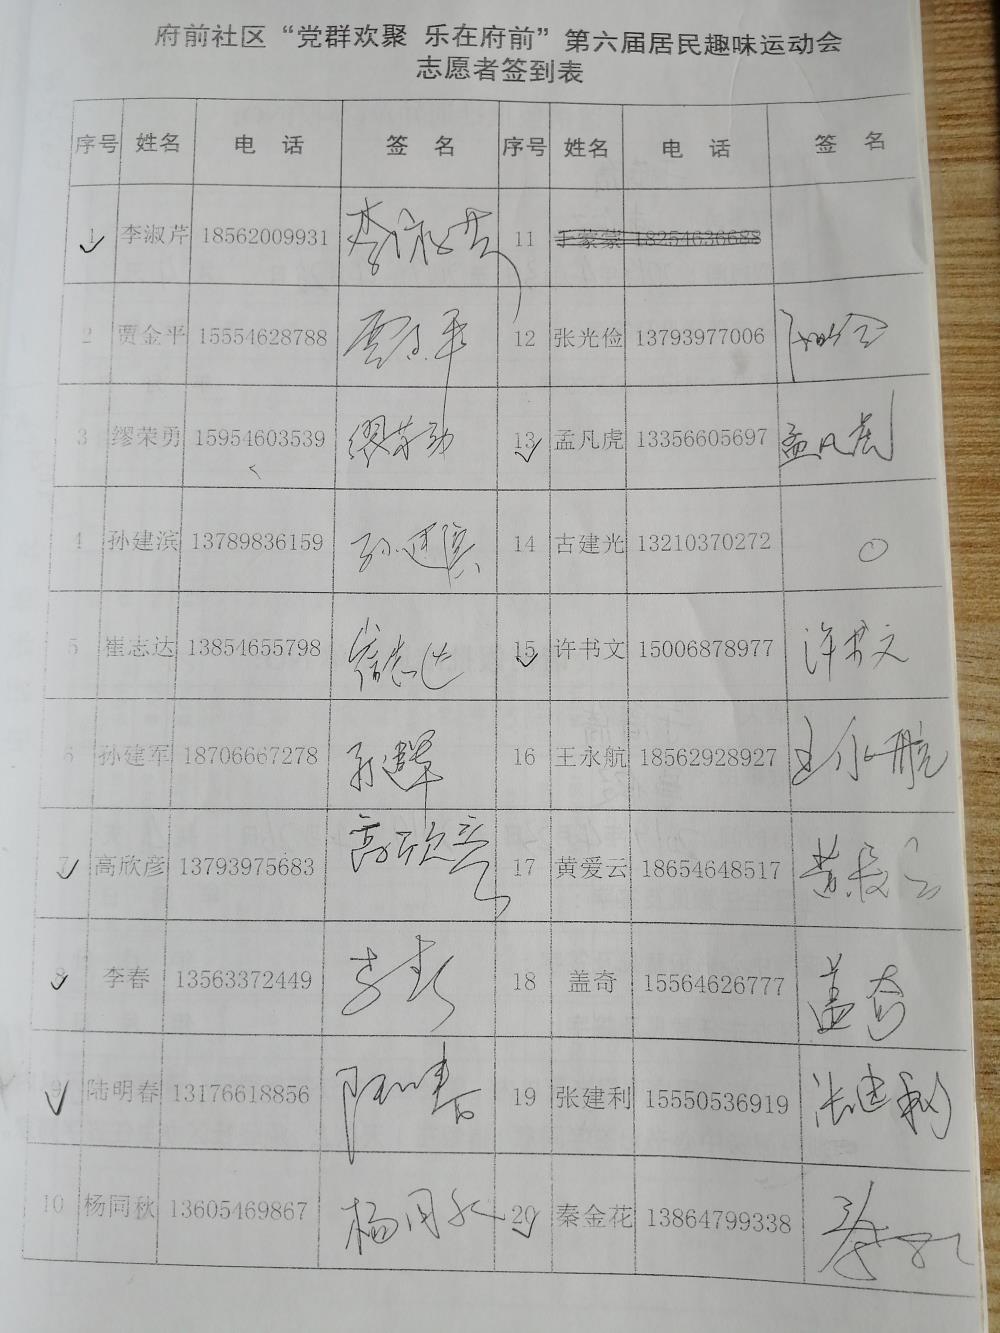 府前社区“党群欢聚 乐在府前”第六届居民趣味运动会
志愿者签到表
序号 姓名 电 话 签 名 序号 姓名 电 话 签 名
1 李淑芹 18562009931 李淑芹 11 于蒙蒙 18254636688
2 贾金平 15554628788 贾金平 12 张光俭 13793977006
3 缪荣勇 15954603539 缪荣勇 13 孟凡虎 13356605697 孟凡虎
4 孙建滨 13789836159 孙建滨 14 古建光 13210370272
5 崔志达 13854655798 崔志达 15 许书文 15006878977 许书文
6 孙建军 18706667278 孙建军 16 王永航 18562928927 王永航
7 高欣彦 13793975683 高欣彦 17 黄爱云 18654648517 黄爱云
8 李春 13563372449 李春 18 盖奇 15564626777 盖奇
9 陆明春 13176618856 陆明春 19 张建利 15550536919 张建利
10 杨同秋 13605469867 杨同秋 20 秦金花 13864799338